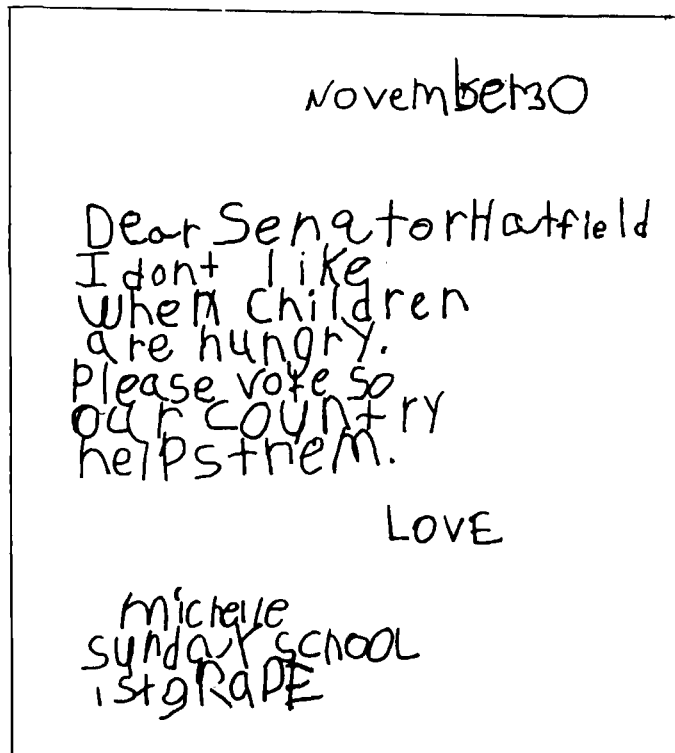 November 30
Dear Senator Hatfield
I dont like
when children
are hungry.
Please vote so
our country
helps them.
LOVE
michelle
sunday SCHOOL
1st gRaDE